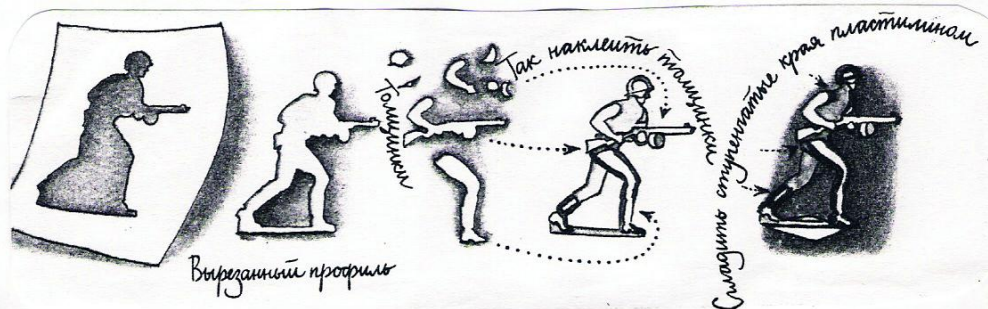 Вырезанный профиль
Толщинки
Так наклеить толщинки
Сгладить ступенчатые края пластилином